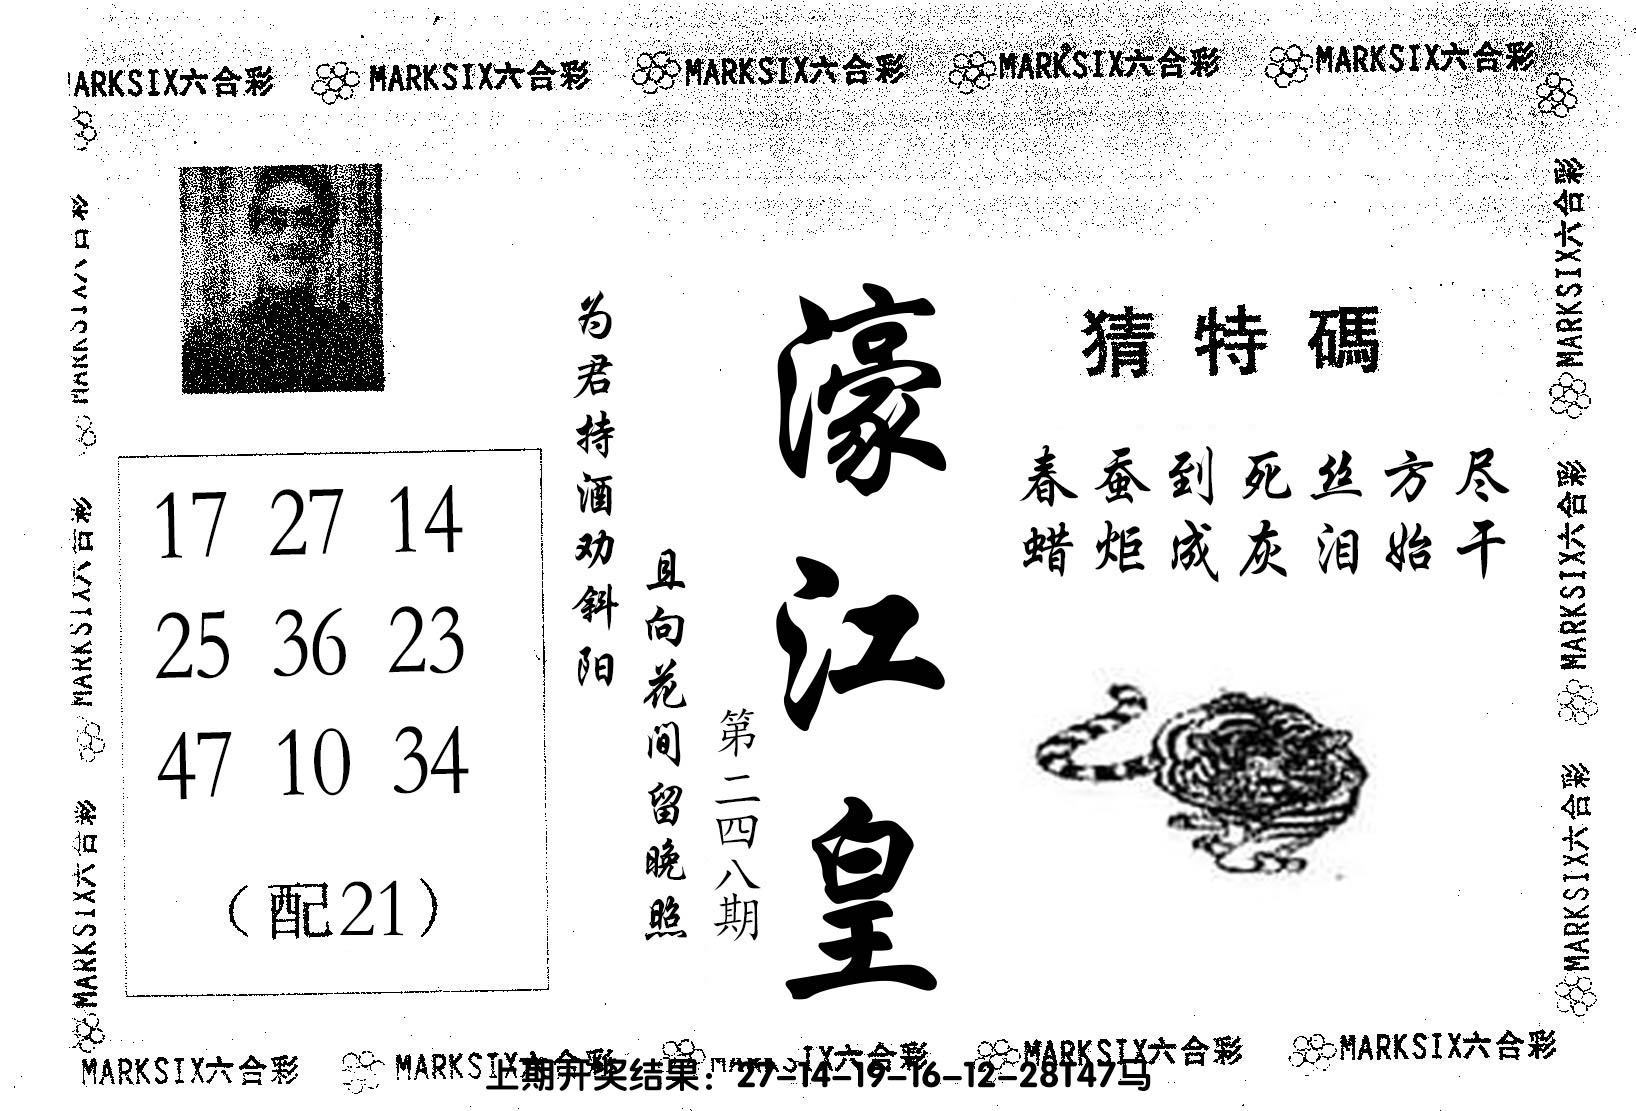 MARKSIX六合彩 MARKSIX六合彩 MARKSIX六合彩 MARKSIX六合彩
MARKSIX六合彩
猜特碼
春蚕到死丝方尽
蜡炬成灰泪始干
濠江皇
第二四八期
为君持酒劝斜阳
且向花间留晚照
17 27 14
25 36 23
47 10 34
（配21）
MARKSIX六合彩
MARKSIX六合彩
MARKSIX六合彩
MARKSIX六合彩
MARKSIX六合彩
MARKSIX六合彩 MARKSIX六合彩 六合彩 MARKSIX六合彩 MARKSIX六合彩
上期开奖结果：27-14-19-16-12-28T47马